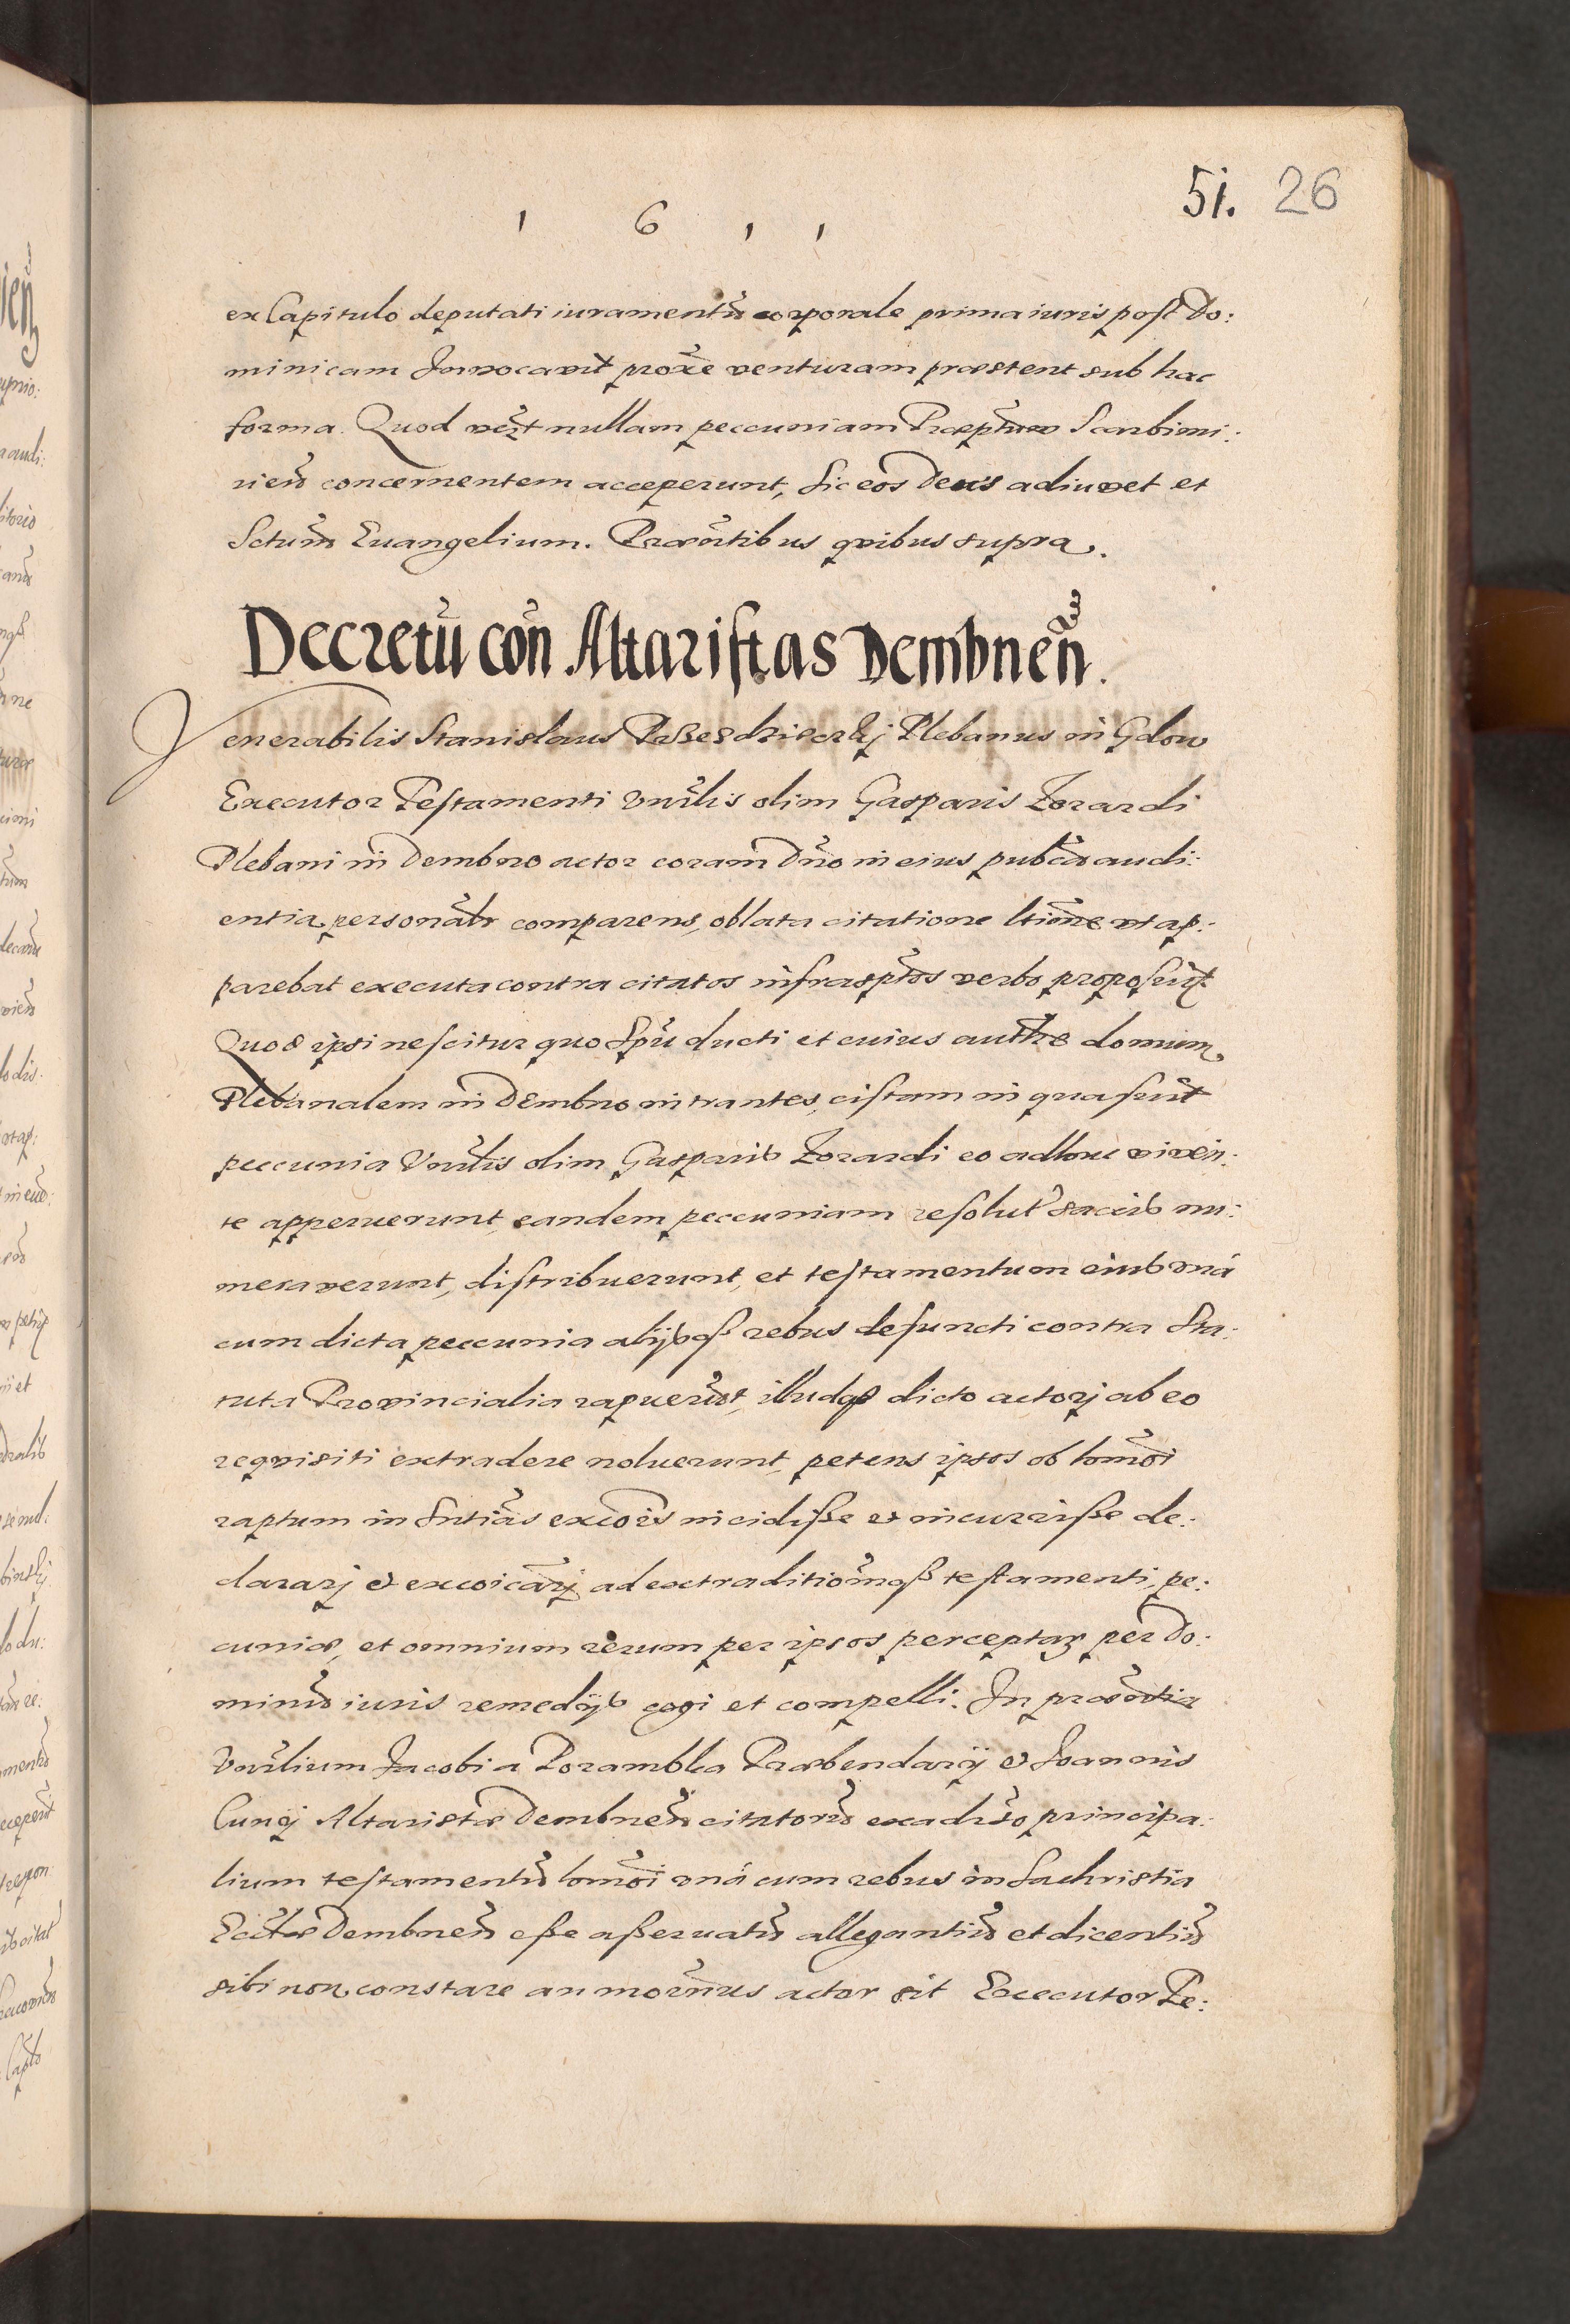 51. 26
1 6 1 1
ex Capitulo deputati iuramentũ corporale prima iuris post Do:
minicam Innocavit proxẽ venturam præstent sub hac
forma. Quod nullam peccuniam Scarbimi:
rieñ concernentem acceperunt, sic eos Deus adiuvet et
Sctum̃ Euangelium. Præñtibus quibus supra.
Decretũ coñ Altaristas Dembneñ.
Venerabilis Stanislaus Plebanus in Gdow
Executor Testamenti Vnr̃lis olim Gasparis Zorardi
Plebani in Dembno actor coram Dño in eius publ̃ca audi:
entia personal̃r comparens, oblata citatione ltiõne vt ap:
parebat executa contra citatos infrasp̃tos verbo proposuit
Quod ipsi nescitur quo Spũ ducti et cuius authre domum
Plebanalem in Dembno intrantes, cistam in qua fuit
peccunia Vnr̃lis olim Gasparis Zorardi eo adhuc viven:
te apperuerunt, eandem peccuniam resolut' saccis nu:
meraverunt, distribuerunt, et testamentum eius vná
cum dicta peccunia alijsqß rebus defuncti contra Sta:
tuta Provincialia rapuerũt, illudqß dicto actorj ab eo
requisiti extradere noluerunt, petens ipsos ob hõmoi
raptum in Sñtias excõis incidiße et incurriße de:
clararj et excoicãrj ad extraditioñmqß testamenti, pe:
cuniæ, et omnium rerum per ipsos perceptarꝫ per Do:
minũ iuris remedijs cogi et compelli. In præsentia
Vnr̃lium Jacobi a Porambka Præbendarij et Joannis
Cunej Altaristæ Dembneñ citatorũ ex adũso principa:
lium testamentũ hõmoi vná cum rebus in Sachristia
Eccl̃æ Dembneñ eße aßeruatũ allegantiũ et dicentiũ
sibi non constare an moer̃nus actor sit Executor Te: